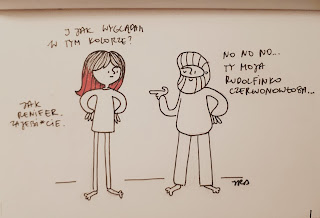 I JAK WYGLĄDAM
W TYM KOLORZE?
NO NO NO...
TY MOJA
RUDOLFINKO
CZERWONOWŁOSA...
JAK
RENIFER.
ZAJEBIŚCIE.